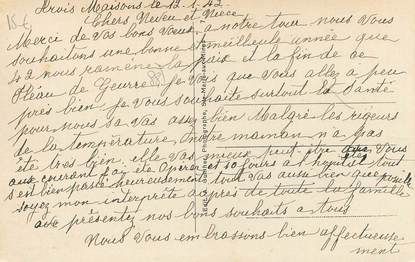 15€
Trois Maisons le 12-1-42
Chers Neveu et Niece
Merci de vas bons Vœux, a notre tour nous Vous
souhaitons une bonne et meilleule année que
42 nous ramène la paix et la fin de ce
fléau de Geurre je Vois que Vous allez a peu
près bien je Vous souhaite surtout la Santé
pour nous sa Vas assez bien Malgré les rigeurs
de la température Notre maman n'a pas
été tres bien, elle Vas mieux peut être
aux courant opérer et 10 jours a tout
s'est bien passé heureusement tout Vas aussi bien que possible
soyez mon interprète auprès de toute la famille
ave présentez nos bons souhaits a tous
Nous Vous embrassons bien affectueuse
ment